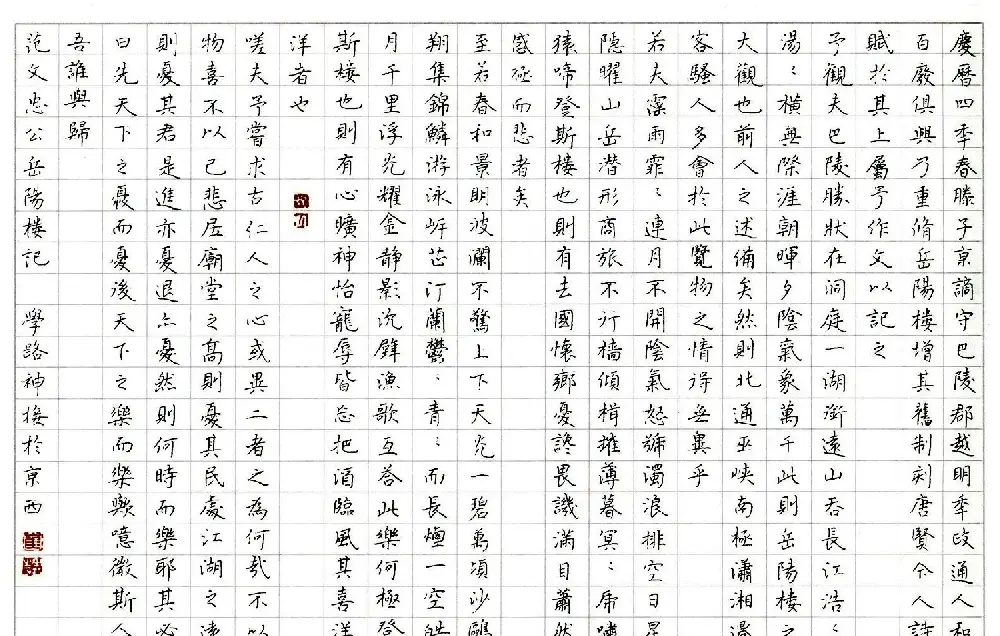 慶曆四年春滕子京謫守巴陵郡越明年政通人和
百廢俱興乃重脩岳陽樓增其舊制刻唐賢今人詩
賦於其上屬予作文以記之
予觀夫巴陵勝狀在洞庭一湖銜遠山吞長江浩〻
湯〻橫無際涯朝暉夕陰氣象萬千此則岳陽樓之
大觀也前人之述備矣然則北通巫峽南極瀟湘遷
客騷人多會於此覽物之情得無異乎
若夫霪雨霏〻連月不開陰氣怒號濁浪排空日星
隱曜山岳潛形商旅不行檣傾楫摧薄暮冥〻虎嘯
猿啼登斯樓也則有去國懷鄉憂讒畏譏滿目蕭然
感極而悲者矣
至若春和景明波瀾不驚上下天光一碧萬頃沙鷗
翔集錦鱗游泳岸芷汀蘭鬱〻青〻而長煙一空皓
月千里浮光耀金靜影沉璧漁歌互答此樂何極登
斯樓也則有心曠神怡寵辱皆忘把酒臨風其喜洋
洋者也
嗟夫予嘗求古仁人之心或異二者之為何哉不以
物喜不以己悲居廟堂之高則憂其民處江湖之遠
則憂其君是進亦憂退亦憂然則何時而樂耶其必
曰先天下之憂而憂後天下之樂而樂歟噫微斯人
吾誰與歸
范文忠公岳陽樓記 學路神於京西